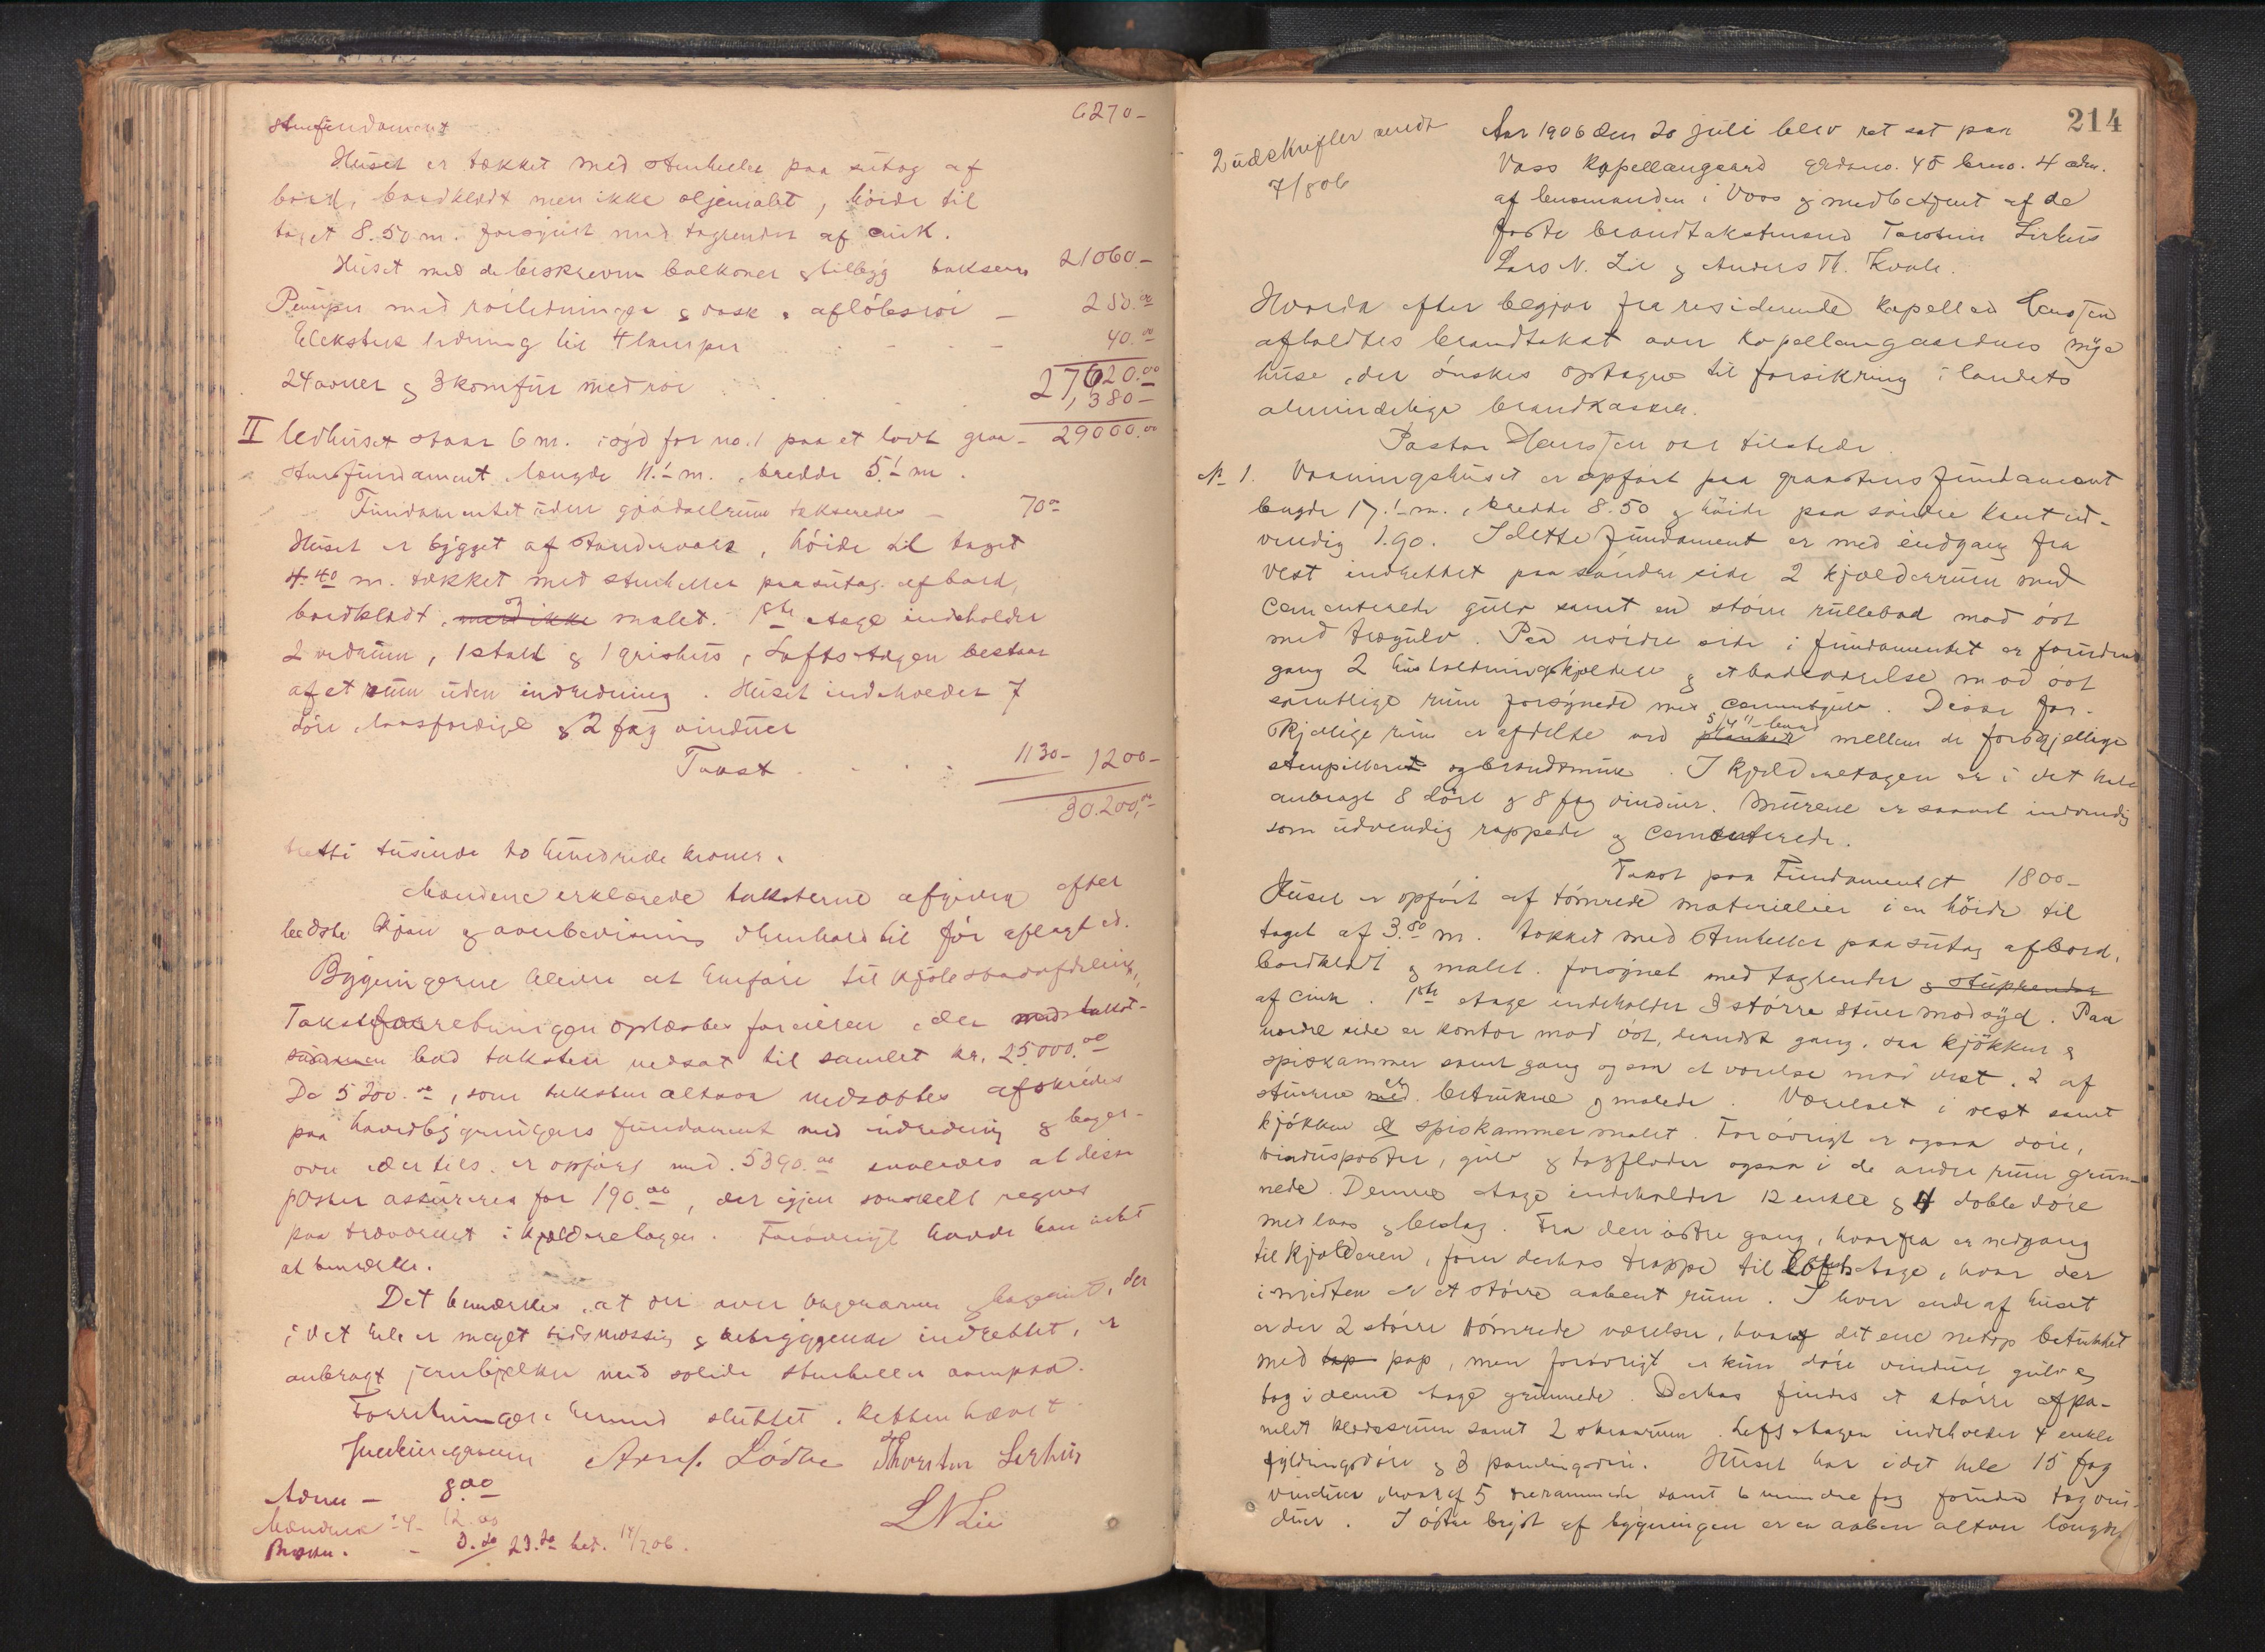 6270-
stenfundament
Huset er tækket med stenheller paa sutag af
bord, bordklædt men ikke oljemalt, høide til
taget 8.50 m. forsynet med tagrender af cink.
Huset med de beskrevne balkoner & tilbygg takseres 21060.-
Pumper med rørledninger & vask & afløbsrør - 250.00
Elektrisk ledning til 4 lamper - - - 40.00
27,620.00
24 ovner & 3 komfur med rør . . . 1,380-
II Vedhuset staar 6 m. i syd for no. 1 paa et lavt graa- 29000.00
stensfundament længde 11.- m., bredde 5.- m.
Fundamentet uden gjødselrum takseres - 70.00
Huset er bygget af standerverk, høide til taget
4.40 m. tækket med stenheller paa sutag af bord,
bordklædt, med ikke & malet. 1ste etage indeholder
2 vedrum, 1 stald & 1 grishus, Loftsetagen bestaar
af et rum uden indredning. Huset indeholder 7
døre laasfærdige & 2 fag vinduer
Takst . . . . 1130- 1200-
30.200,00
tretti tusinde to hundrede kroner.
Mændene erklærede taksterne afgivne efter
bedste skjøn & overbevisning i henhold til før aflagt ed.
Bygningerne bleve at henføre til kjøbstadafdeling,
Takstforretningen oplæstes for eieren, der med takst-
summen bad taksten nedsat til samlet kr. 25000.00
De 5200.00, som taksten altsaa nedsattes afskrides
paa hovedbygningens fundament med indredning & bager-
ovn der tils. er opført med 5390.00 saaledes at disse
poster assureres for 190.00, der igjen som helt regnes
paa træverket i kjælderetagen. Forøvrigt havde han intet
at bemærke.
Det bemærkes, at der over bagerovnen & bageriet, der
i det hele er meget tidsmæssig & betryggende indrettet, er
anbragt jernbjelker med solide stenheller ovenpaa.
Forretningen hermed sluttet. Retten hævet
Arnf. Lødve Thorsten Lirhus
Adm - 8.00
Mændene - 4 - 12.00 L N Lie
3.20 23.20 bet. 14/7 06.
214
2 udskrifter sendt
7/8 06
Aar 1906 den 20 juli blev ret sat paa
Voss Kapellangaard grdsno. 45 brno. 4 adm.
af lensmanden i Voss & medbetjent af de
faste brandtakstmænd Torstein Lirhus
Lars N. Lie & Anders Th. Kvale.
Hvorda efter begjær fra residerende kapellan
afholdtes brandtakst over Kapellangaardens nye
huse, der ønskes optagne til forsikring i landets
almindelige brandkasser.
Pastor var tilstede.
No 1. Vaaningshuset er opført paa graastens fundament
længde 17.- m., bredde 8.50 & høide paa søndre kant ud-
vendig 1.90. I dette fundament er med indgang fra
vest indrettet paa søndre side 2 kjælderrum med
cementerede gulv samt en større rullebod mod øst
med trægulv. Paa nordre side i fundamentet er foruden
gang 2 husholdningskjældere & et badeværelse mod øst
samtlige rum forsynede med cementgulv. Disse for-
skjellige rum er afdelte ved planker 5/4" bord mellem de forskjellige
stenpillerer og brandmure. I kjælderetagen er i det hele
anbragt 8 døre & 8 fag vinduer. Murene er saavel indvendig
som udvendig rappede & cementerede.
Takst paa Fundamentet 1800-
Huset er opført af tømrede materialier i en høide til
taget af 3.50 m. tækket med stenheller paa sutag af bord,
bordklædt & malet. forsynet med tagrender & stuprender
af cink. 1ste etage indeholder 3 større stuer mod syd. Paa
nordre side er kontor mod øst, dernæst gang, saa kjøkken &
spiskammer samt gang og saa et værelse mod vest. 2 af
stuerne med er betrukne & malede. Værelset i vest samt
kjøkken & spiskammer malet. Forøvrigt er ogsaa døre,
vinduspostter, gulv & tagflader ogsaa i de andre rum grun-
nede. Denne etage indeholder 12 enkle & 4 doble døre
med laas & beslag. Fra den østre gang, hvorfra er nedgang
til kjælderen, fører derhos trappe til loftsetage, hvor der
i midten er et større aabent rum. I hver ende af huset
er der 2 større tømrede værelser, hvoraf det ene netop betrukket
med tap pap, men forøvrigt er kun døre vinduer gulv &
tag i denne etage grunnede. Derhos findes et større afpa-
nelet klædesrum samt 2 skraarum. Loftsetagen indeholder 4 enkle
fyldingsdøre & 3 panelingsdøre. Huset har i det hele 15 fag
vinduer hvoraf 5 trerammede samt 6 mindre fag foruden tagvin-
duer. I østre bryst af bygningen er en aaben altan længde